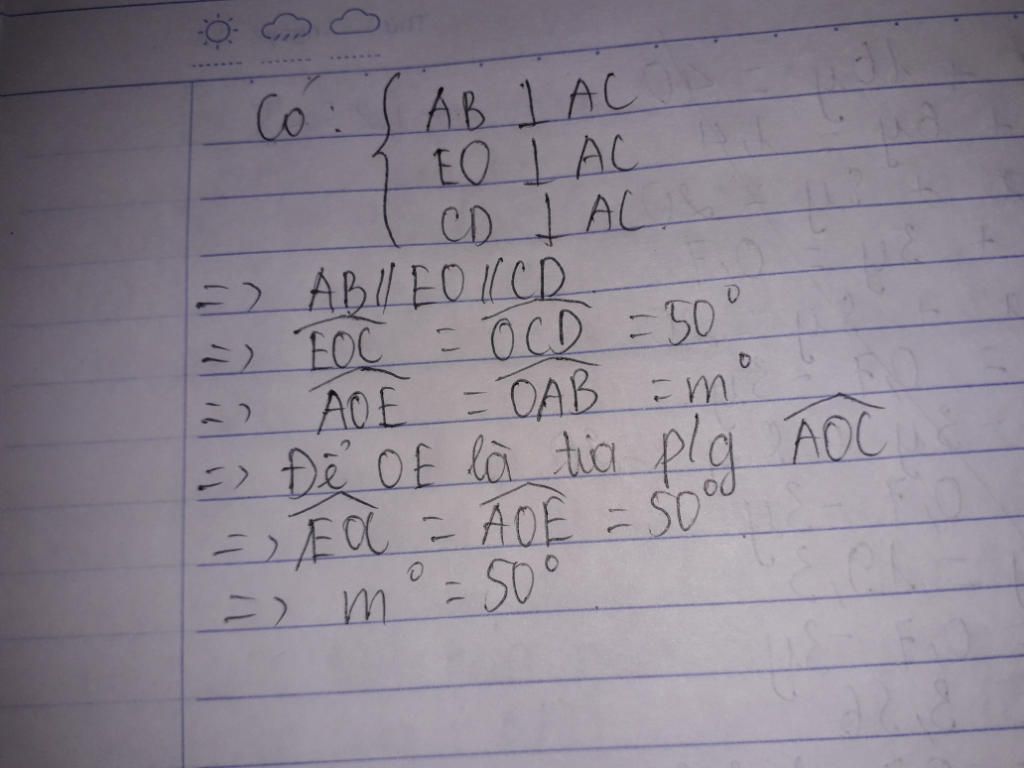 Có: { AB ⊥ AC
EO ⊥ AC
CD ⊥ AC
=> AB // EO // CD
=> \widehat{EOC} = \widehat{OCD} = 50°
=> \widehat{AOE} = \widehat{OAB} = m°
=> Để OE là tia p/g \widehat{AOC}
=> \widehat{EOC} = \widehat{AOE} = 50°
=> m° = 50°